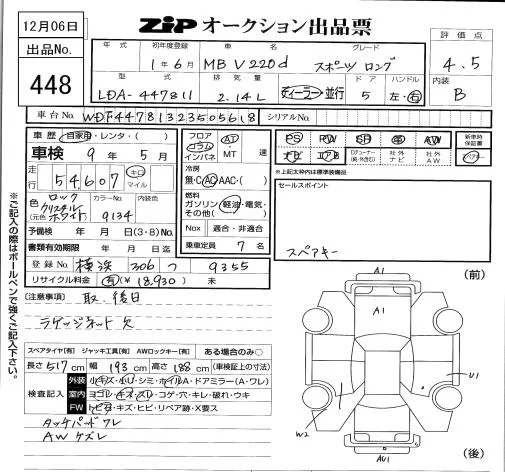 12月06日
ZIP オークション出品票
出品No.
448
評価点
4.5
内装
B
年式
初年度登録
車名
グレード
1年6月
MB V220d
スポーツ ロング
型式
排気量
ドア
ハンドル
LDA-447811
2.14L
ディーラー・並行
5
左・右
車台No.
WDF44781323505618
シリアルNo.
車歴
自家用・レンタ・( )
車検
9年5月
走行
54,607
キロ
マイル
色
ロック
クリスタル
(元色 ホワイト)
カラーNo.
9134
内装色
予備検 年 月 日(3・8)No.
書類有効期限 年 月 日迄
登録No.
横浜 306 つ 9355
リサイクル料金 有(¥18,930) 未
フロア
コラム
インパネ
AT
・
MT
速
冷房
無・C・AC・AAC・( )
燃料
ガソリン・軽油・電気・
その他( )
Nox
適合・非適合
乗車定員
7名
PS
PW
SR
革
AW
ナビ
エアB
社外
ナビ
社外
AW
新車時
保証書
※上記太枠内は標準装備品
セールスポイント
スペアキー
(注意事項)
取、後日
ラゲッジネット欠
スペアタイヤ[有] ジャッキ工具[有] AWロックキー[有] ある場合のみ○
長さ517cm 幅193cm 高さ188cm (車検証上の寸法)
検査記入
外装
小キズ・小凹・シミ・ホイルA・ドアミラー(A・ワレ)
室内
ヨゴレ・キズ・スレ・コゲ・穴・キレ・破れ・ウキ
FW
トビ石・キズ・ヒビ・リペア跡・X要ス
タッチパッドワレ
AWケズレ
※ご記入の際はボールペンで強くご記入下さい。
(前)
A1
A1
U1
W2
AU1
(後)